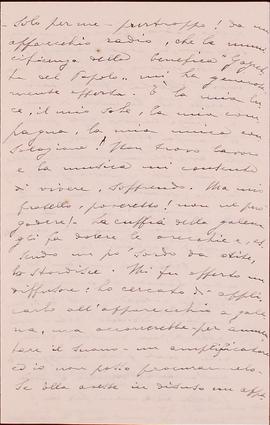 - Solo per me - purtroppo! da un
apparecchio radio, che la muni
ficenza della benefica "Gazzet
ta del Popolo" mi ha generosa
mente offerto - È la mia lu
ce, il mio sole, la mia com
pagna, la mia unica con
solazione! Non trovo lavoro
e la musica mi contento
di vivere, soffrendo. Ma mio
fratello, poveretto! non ne può
godere! La cuffia della galena
gli fa dolere le orecchie e, es
sendo un po' sordo da otite,
lo stordisce. Mi fu offerto un
diffusore: ho cercato di appli
carlo all'apparecchio a gale
na, ma occorrerebbe per aumen
tare il suono - un amplificatore
ed io non posso procurarmelo.
Se ella avesse in disuso un appa